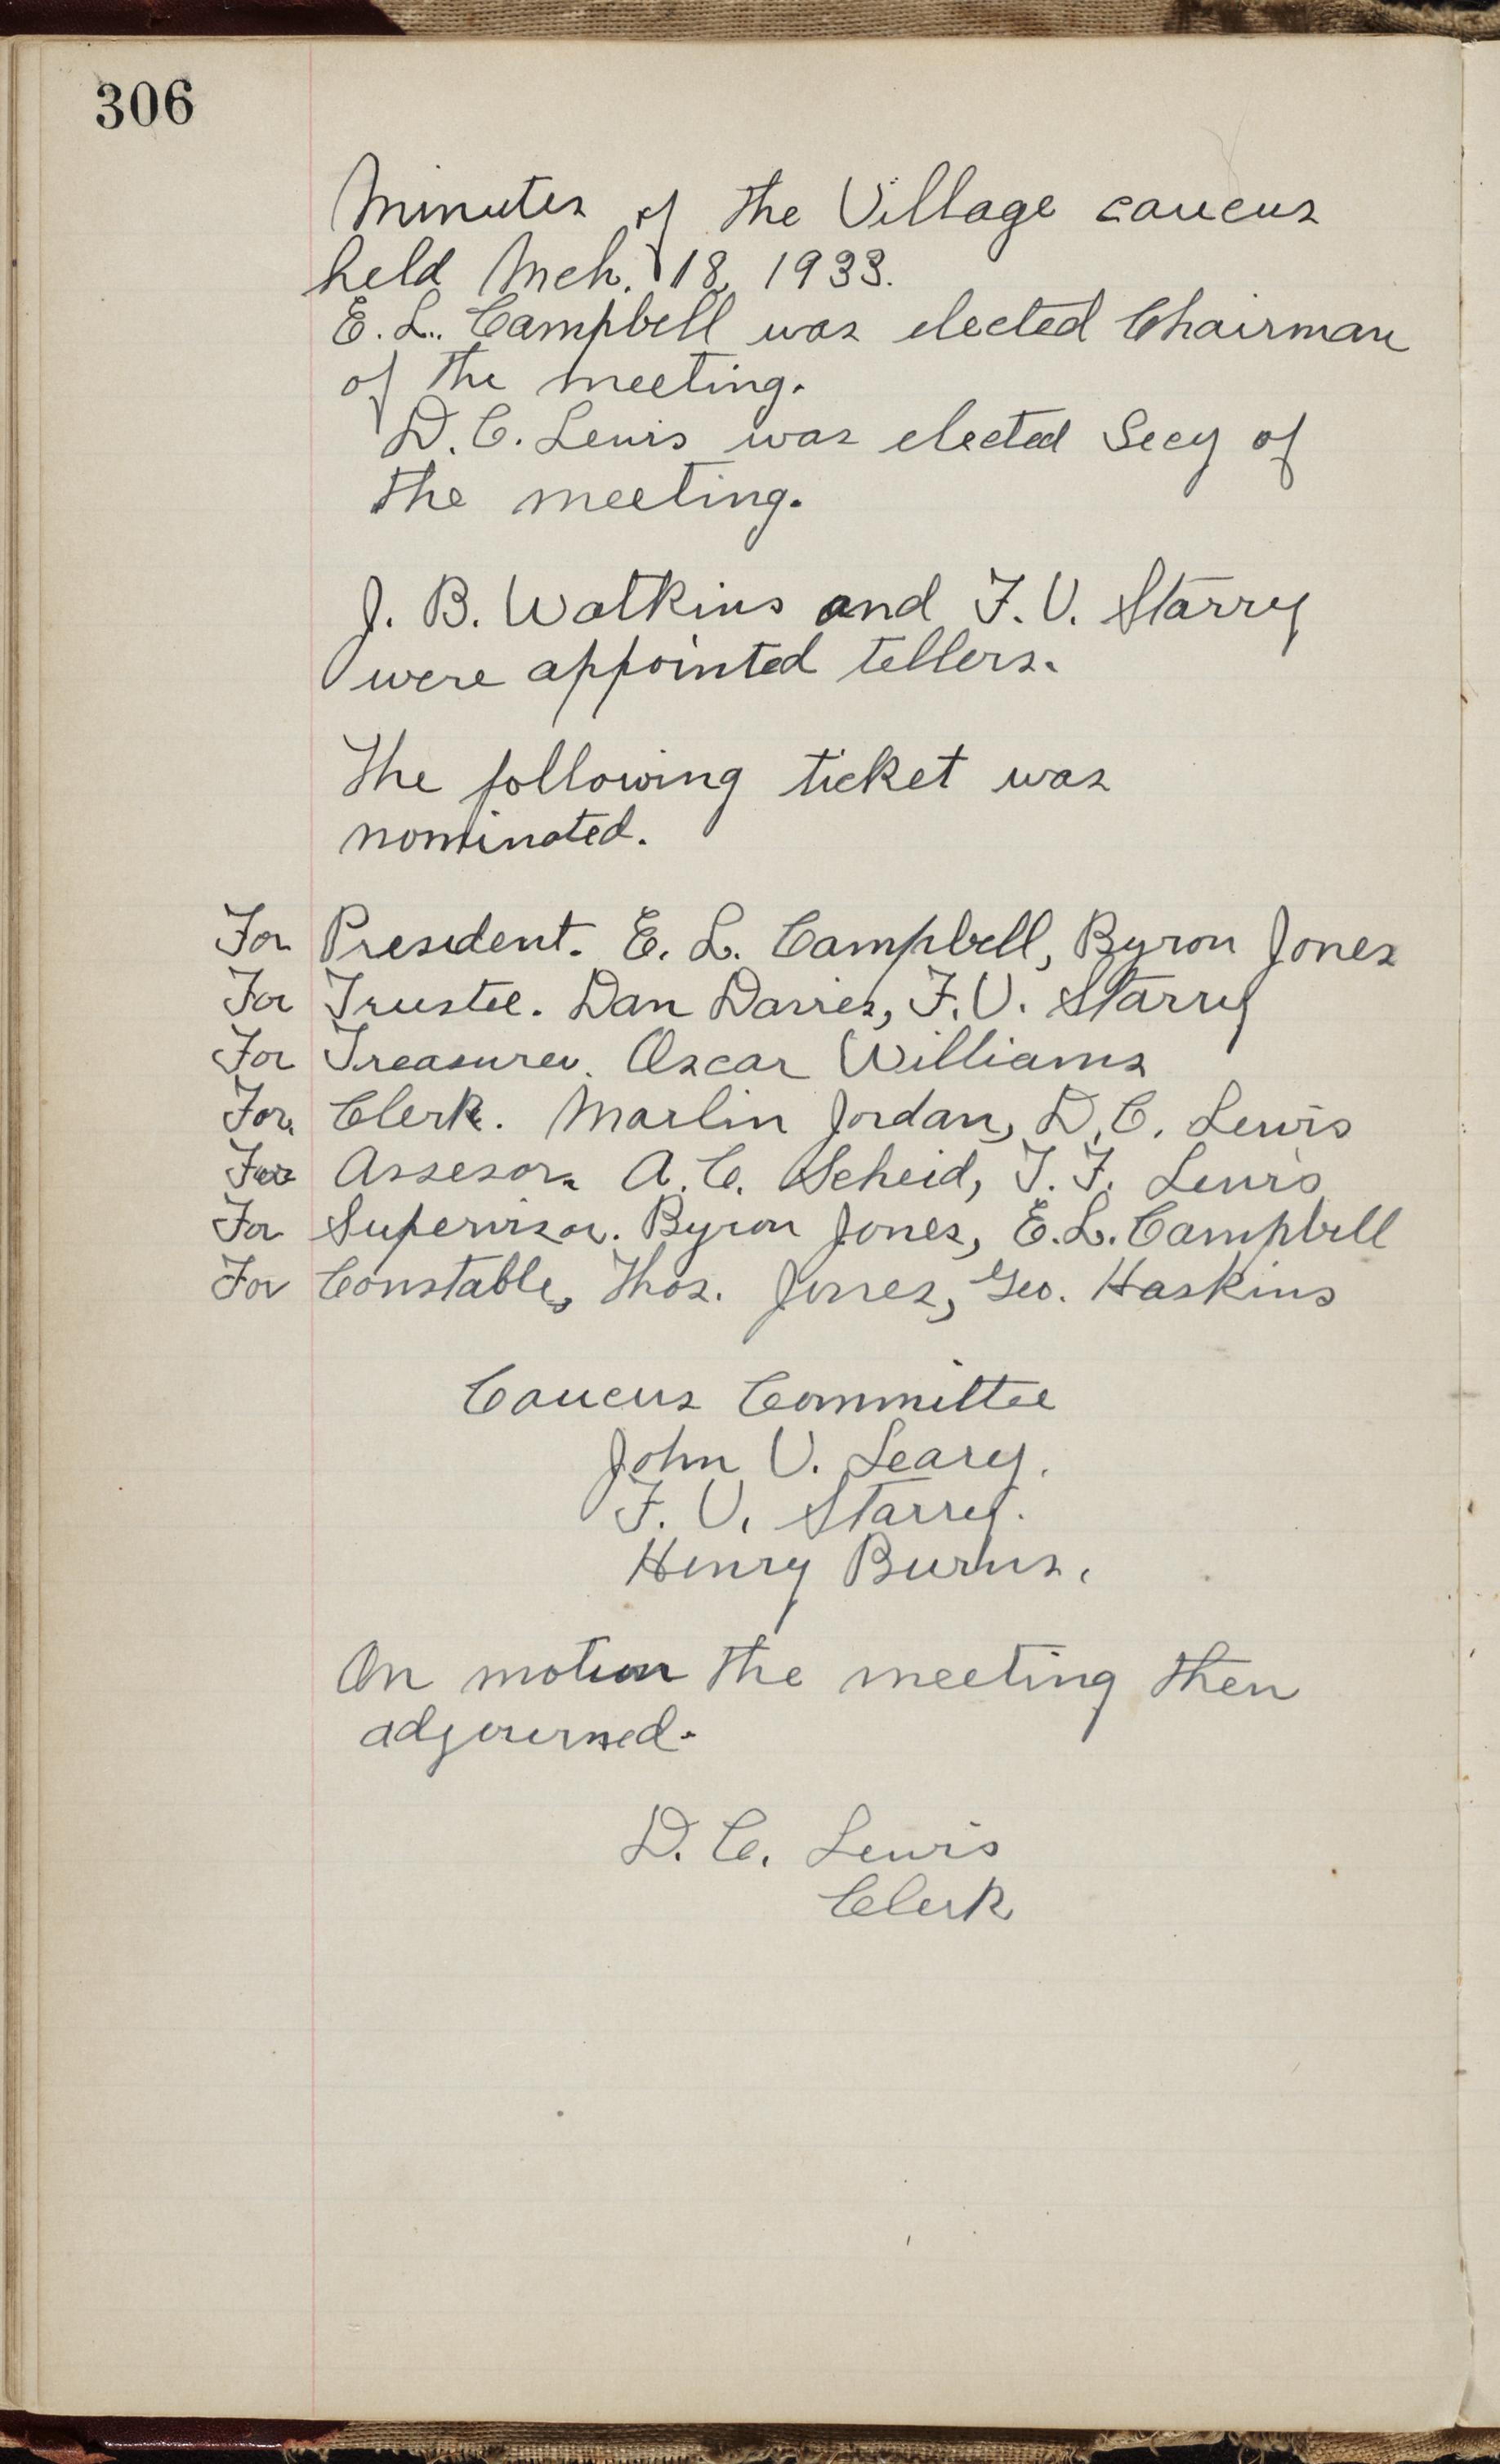 306
Minutes of the Village caucus
held Mch. 18, 1933.
E. L. Campbell was elected Chairman
of the meeting.
D. C. Lewis was elected Secy of
the meeting.
J. B. Watkins and F. V. Starry
were appointed tellers.
The following ticket was
nominated.
For President. E. L. Campbell, Byron Jones
For Trustee. Dan Davies, F. V. Starry
For Treasurer. Oscar Williams
For Clerk. Marlin Jordan, D. C. Lewis
For Assesor. A. C. Scheid, T. F. Lewis
For Supervisor. Byron Jones, E. L. Campbell
For Constable, Thos. Jones, Geo. Haskins
Caucus Committee
John V. Leary.
F. V. Starry.
Henry Burns.
On motion the meeting then
adjourned.
D. C. Lewis
Clerk